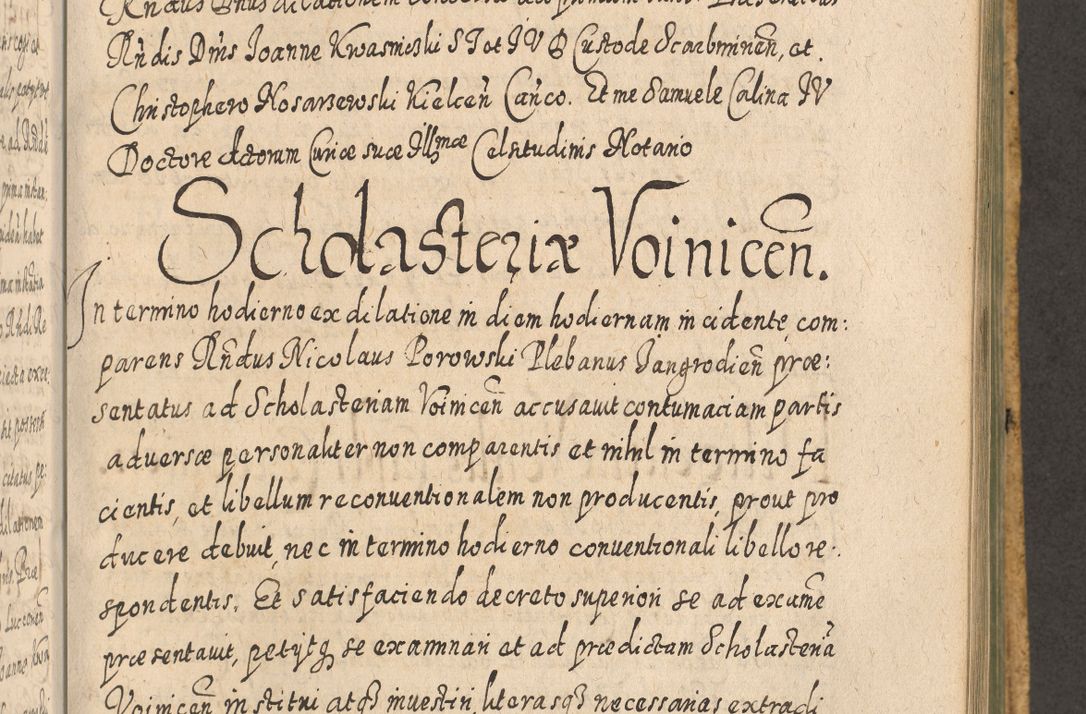 Rñdis Dnis Joanne Kwasnieski S J et J V D Custode Scarbminen̄, et.
Christophero Nosarzewski Kielcen̄ Canco. Et me Samuele Calina JV
Doctore Actorum Curiæ suæ Illmæ Celsitudinis Notario
Scholasteriæ Voinicen̄.
In termino hodierno ex dilatione in diem hodiernam incidente, com:
parens Rñdus Nicolaus Porowski Plebanus Jangrodien̄ præ:
sentatus ad Scholasteriam Voinicen̄ accusavit contumaciam partis
adversæ personaliter non comparentis et nihil in termino fa
cientis, et libellum reconventionalem non producentis, prout pro
ducere debuit, nec in termino hodierno conventionali libello re:
spondentis. Et satisfaciendo decreto superiori se ad exame
præsentavit, petijtq se examinari et ad prædictam Scholasteriā
Voinicen̄ institui atq investiri, literasq necessarias extradi